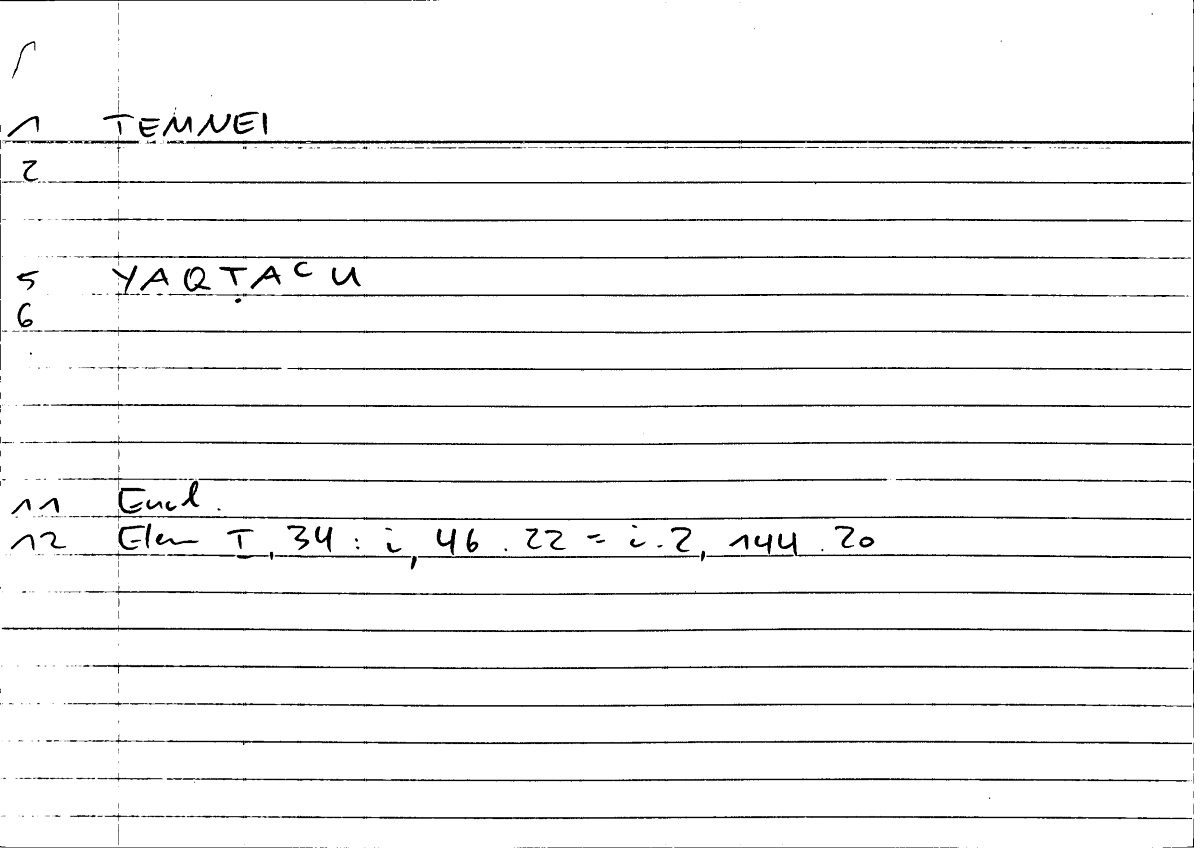 1 TEMNEI
2
5 YAQṬAʿU
6
11 Eucl.
12 Elem I, 34 : i, 46 . 22 = i. 2, 144 . 20